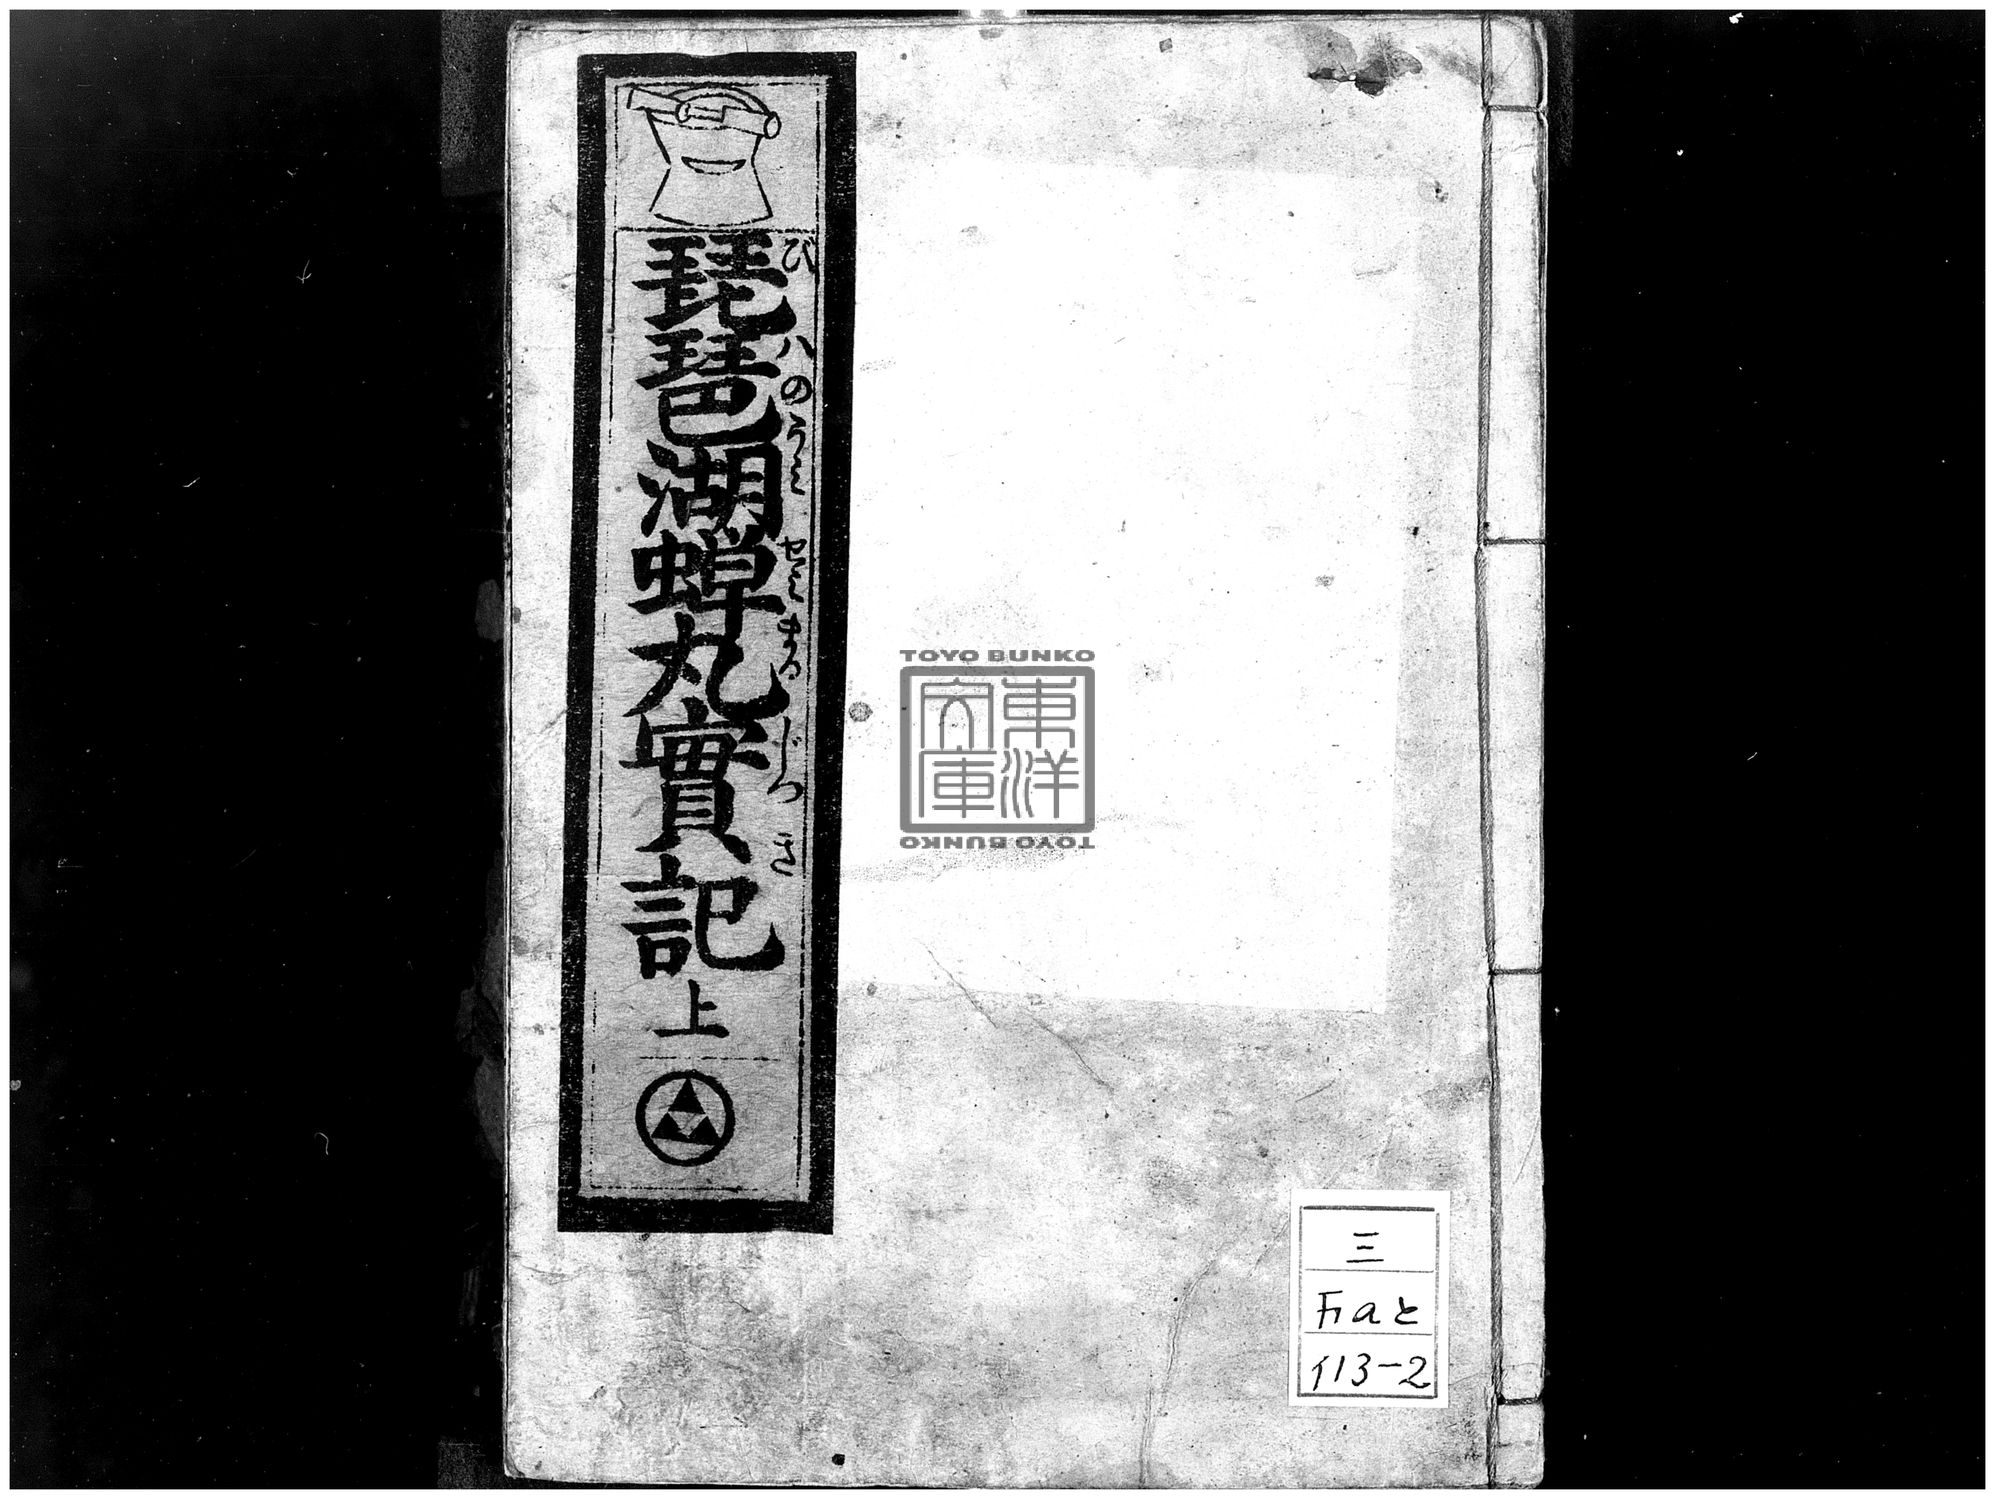 琵琶湖蝉丸實記 上
びハのうミ セミまる じつき
TOYO BUNKO
東洋
文庫
TOYO BUNKO
三
aと
113-2